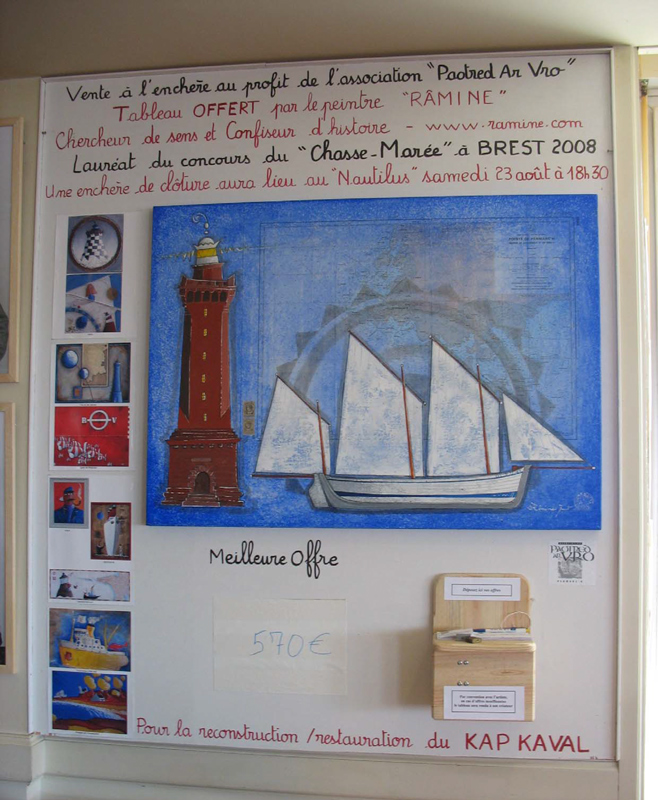 Vente à l'enchère au profit de l'association "Paotred Ar Vro"
Tableau OFFERT par le peintre "RÂMINE"
Chercheur de sens et Confiseur d'histoire - www.ramine.com
Lauréat du concours du "Chasse-Marée" à BREST 2008
Une enchère de clôture aura lieu au "Nautilus" samedi 23 août à 18h30
Meilleure Offre
570€
PAOTRED
AR VRO
Déposez ici vos offres
Pour la reconstruction / restauration du KAP KAVAL